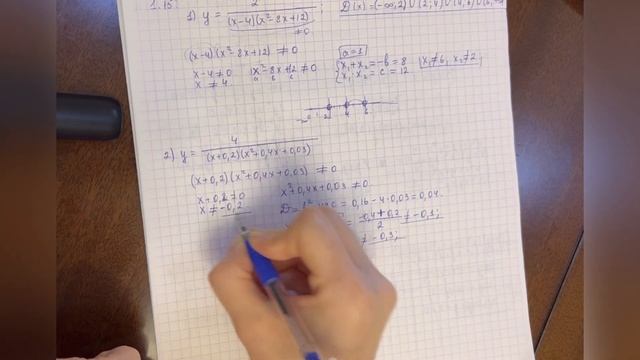 1.15.
1) y = 2 / (x-4)(x²-8x+12)
≠0
D(x) = (-∞; 2) ∪ (2; 4) ∪ (4; 6) ∪ (6;
(x-4)(x²-8x+12) ≠ 0
x-4≠0
x ≠ 4
x²-8x+12 ≠ 0
a b c
a=1
x₁+x₂ = -b = 8
x₁·x₂ = c = 12
x₁≠6, x₂≠2;
2 4 6
2) y = 4 / (x+0,2)(x²+0,4x+0,03)
(x+0,2)(x²+0,4x+0,03) ≠ 0
x+0,2 ≠0
x ≠ -0,2
x²+0,4x+0,03 ≠0
= 0,16 - 4·0,03 = 0,04.
= -0,4+0,2 / 2 ≠ -0,1;
≠ -0,3;